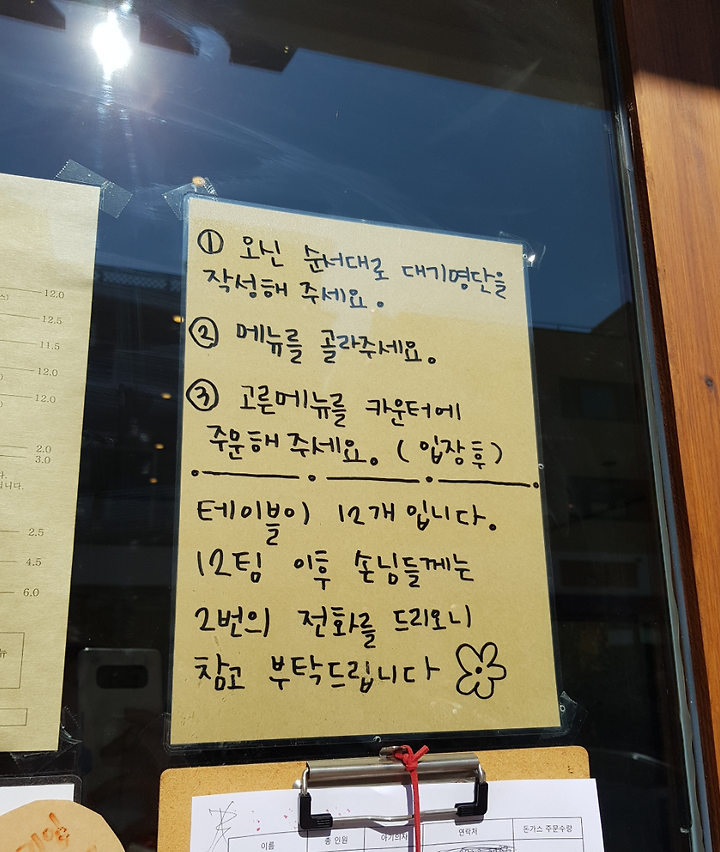 ① 오신 순서대로 대기명단을
작성해 주세요.
② 메뉴를 골라주세요.
③ 고른메뉴를 카운터에
주문해 주세요. (입장 후)
테이블이 12개 입니다.
12팀 이후 손님들께는
2번의 전화를 드리오니
참고 부탁드립니다
12.0
12.5
11.5
12.0
12.0
2.0
3.0
니다.
2.5
4.5
6.0
이름 총 인원 아기의자 연락처 돈가스 주문수량